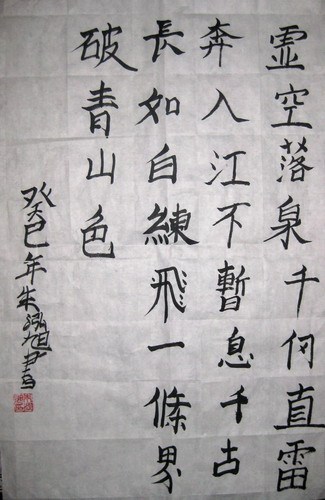 虚空落泉千仞直雷
奔入江不暫息千古
長如白練飛一條界
破青山色
癸巳年朱書